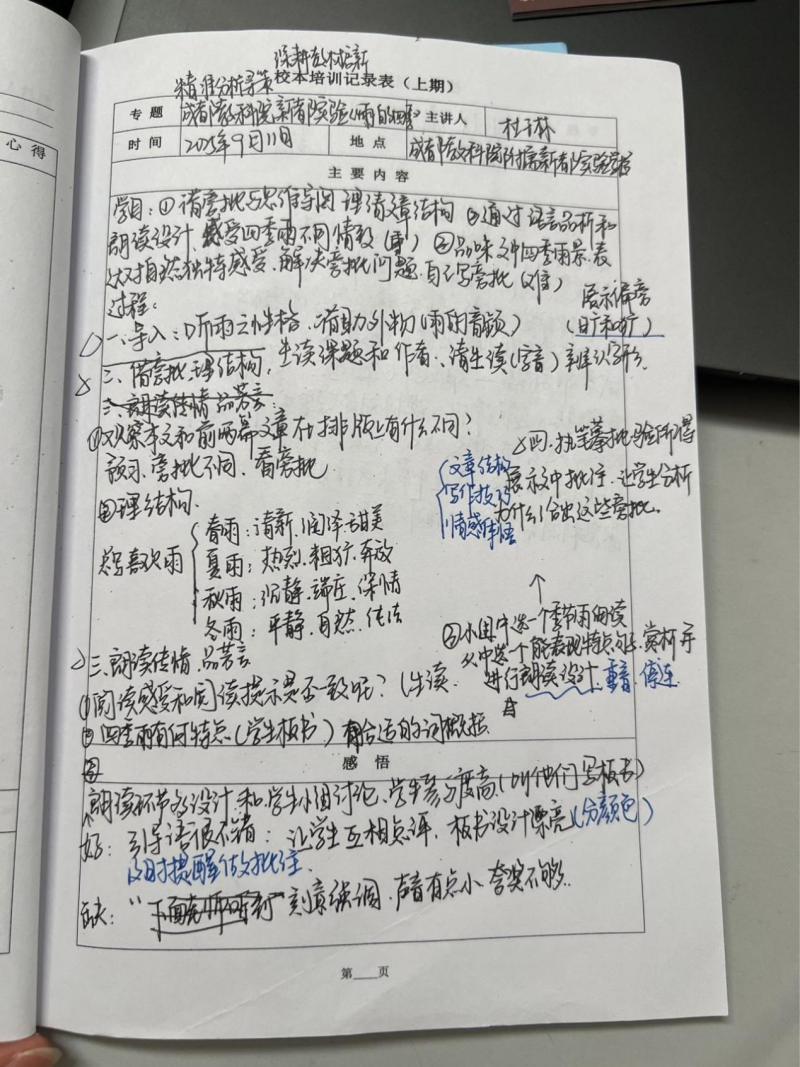 心得
深耕教材新
精准分析寻策
校本培训记录表（上期）
专题 成都教科院新都实验《雨的四季》 主讲人 杜玉林
时间 2025年9月11日 地点 成都教科院附属新都实验学校
主要内容
学目：①借旁批与思维导图理清文章结构 ②通过语言品析和
朗读设计，感受四季雨不同情致（重）③品味文中四季雨景，表
达对自然独特感受，解决旁批问题，自己写旁批（难）
过程：
展示偏旁
一、导入：①听雨 借助外物（雨的音频）
（日广和犭）
生读课题和作者，请生读（字音）辨认字形
二、借旁批，理结构
三、朗读传情，品芳言：
①观察本文和前两篇文章在排版上有什么不同？
预习、旁批不同，看旁批
②理结构
总写喜欢雨
春雨：清新、润泽甜美
夏雨：热烈、粗犷、奔放
秋雨：沉静、端庄、深情
冬雨：平静、自然
四、执笔摹批，验所得
展示文中批注，让学生分析
为什么给出这些旁批。
文章结构
写作技巧
情感体悟
三、朗读传情，品芳言
①阅读感受和阅读提示是否一致呢？（生读
②四季雨有何特点（学生板书）有合适的词概括
③小组中选一个季节雨细读
从中选一个能表现特点句子，赏析并
进行朗读设计，重音，停连
感悟
朗读环节的设计，和学生小组讨论，学生参与度高（叫他们写板书）
好：引导语很不错；让学生互相点评，板书设计漂亮（分颜色）
及时提醒做批注
缺： 刻意强调，声音有点小，夸奖不够。
第 页